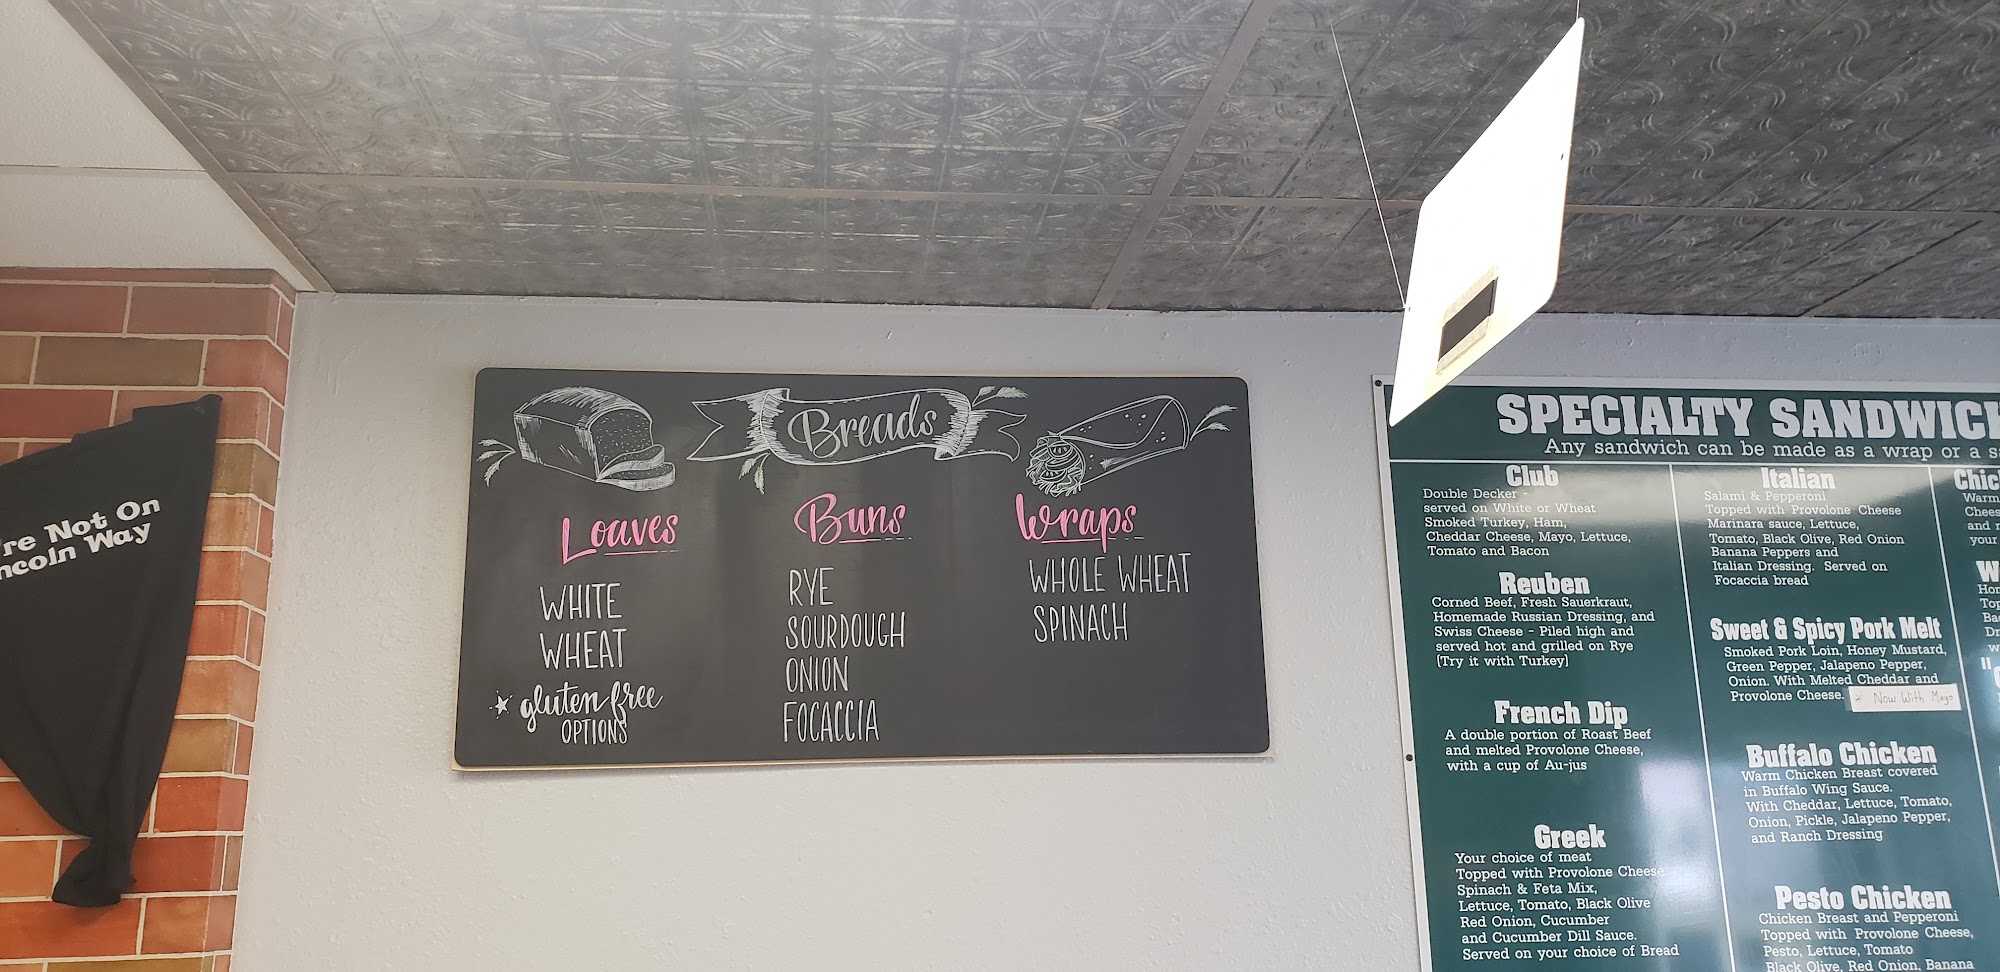 re Not On
ncoln Way
Breads
Loaves
WHITE
WHEAT
gluten free
OPTIONS
Buns
RYE
SOURDOUGH
ONION
FOCACCIA
Wraps
WHOLE WHEAT
SPINACH
SPECIALTY SANDWICH
Any sandwich can be made as a wrap or a s
Club
Double Decker -
served on White or Wheat
Smoked Turkey, Ham,
Cheddar Cheese, Mayo, Lettuce,
Tomato and Bacon
Reuben
Corned Beef, Fresh Sauerkraut,
Homemade Russian Dressing, and
Swiss Cheese - Piled high and
served hot and grilled on Rye
(Try it with Turkey)
French Dip
A double portion of Roast Beef
and melted Provolone Cheese,
with a cup of Au-jus
Greek
Your choice of meat
Topped with Provolone Cheese
Spinach & Feta Mix,
Lettuce, Tomato, Black Olive
Red Onion, Cucumber
and Cucumber Dill Sauce.
Served on your choice of Bread
Italian
Salami & Pepperoni
Topped with Provolone Cheese
Marinara sauce, Lettuce,
Tomato, Black Olive, Red Onion
Banana Peppers and
Italian Dressing. Served on
Focaccia bread
Sweet & Spicy Pork Melt
Smoked Pork Loin, Honey Mustard,
Green Pepper, Jalapeno Pepper,
Onion. With Melted Cheddar and
Provolone Cheese. * Now With Mayo
Buffalo Chicken
Warm Chicken Breast covered
in Buffalo Wing Sauce.
With Cheddar, Lettuce, Tomato,
Onion, Pickle, Jalapeno Pepper,
and Ranch Dressing
Pesto Chicken
Chicken Breast and Pepperoni
Topped with Provolone Cheese,
Pesto, Lettuce, Tomato
Black Olive, Red Onion, Banana
Chic
Warm
Chees
and
your